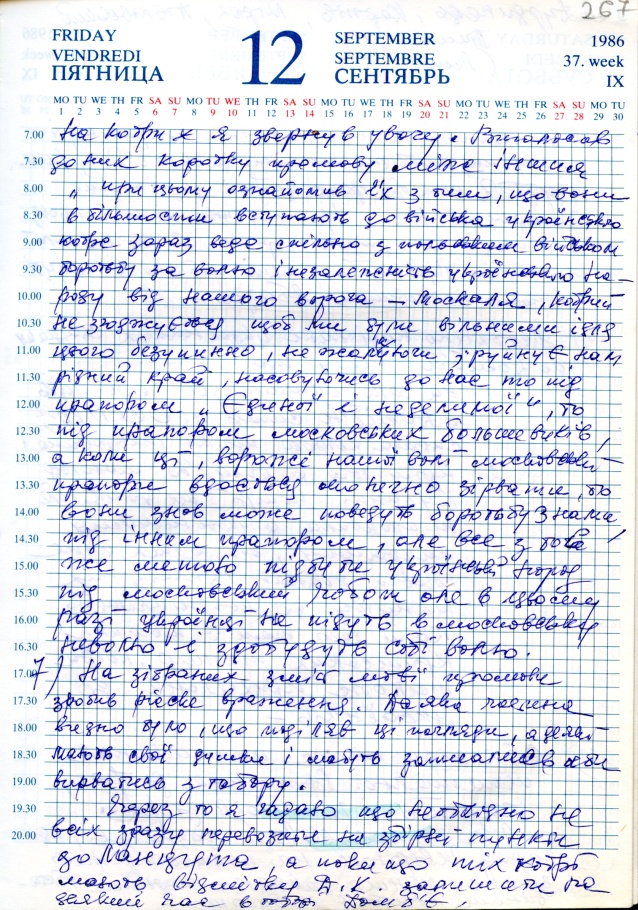 267
FRIDAY
VENDREDI
ПЯТНИЦА
12
SEPTEMBER
SEPTEMBRE
СЕНТЯБРЬ
1986
37. week
IX
MO TU WE TH FR SA SU MO TU WE TH FR SA SU MO TU WE TH FR SA SU MO TU WE TH FR SA SU MO TU
1 2 3 4 5 6 7 8 9 10 11 12 13 14 15 16 17 18 19 20 21 22 23 24 25 26 27 28 29 30
7.00 На котрих я звернув увагу. Виголосив
7.30 до них коротку промову між іншим
8.00 „ при цьому ознайомив їх з тим, що вони
8.30 в більшости вступають до війська українського
9.00 котре зараз веде спільно з польським військом
9.30 боротьбу за волю і незалежність українського на-
10.00 роду від нашого ворога – москаля, котрий
10.30 не згоджується щоб ми були вільними і для
11.00 цього безупинно, не жаліючи, руйнує нам
11.30 рідний край, насовуючись до нас то під
12.00 прапором „Єдиної і неделимої", то
12.30 під прапором московських большевиків,
13.00 а коли ці, ворожі нашій волі московські
13.30 прапори вдасться остаточно зірвати, то
14.00 вони знов може поведуть боротьбу з нами
14.30 під іншим прапором, але все з тою
15.00 же метою підбити український народ
15.30 під московський чобіт але в цьому
16.00 разі українці не підуть в московську
16.30 неволю і здобудуть собі волю.
17.00 7) На зібраних зміст моєї промови
17.30 зробив ріжне враження. Деяка частина
18.00 видно було, що поділяв ці погляди, а деякі
18.30 мають свої думки і мабуть записались аби
19.00 вирватись з табору.
19.30 Через то я гадаю що необхідно не
20.00 всіх зразу перевозити на збірні пункти
до Ланцута, а поки що тих котрі
мають відмітку Д.К. залишити на
деякий час в Домб'є,